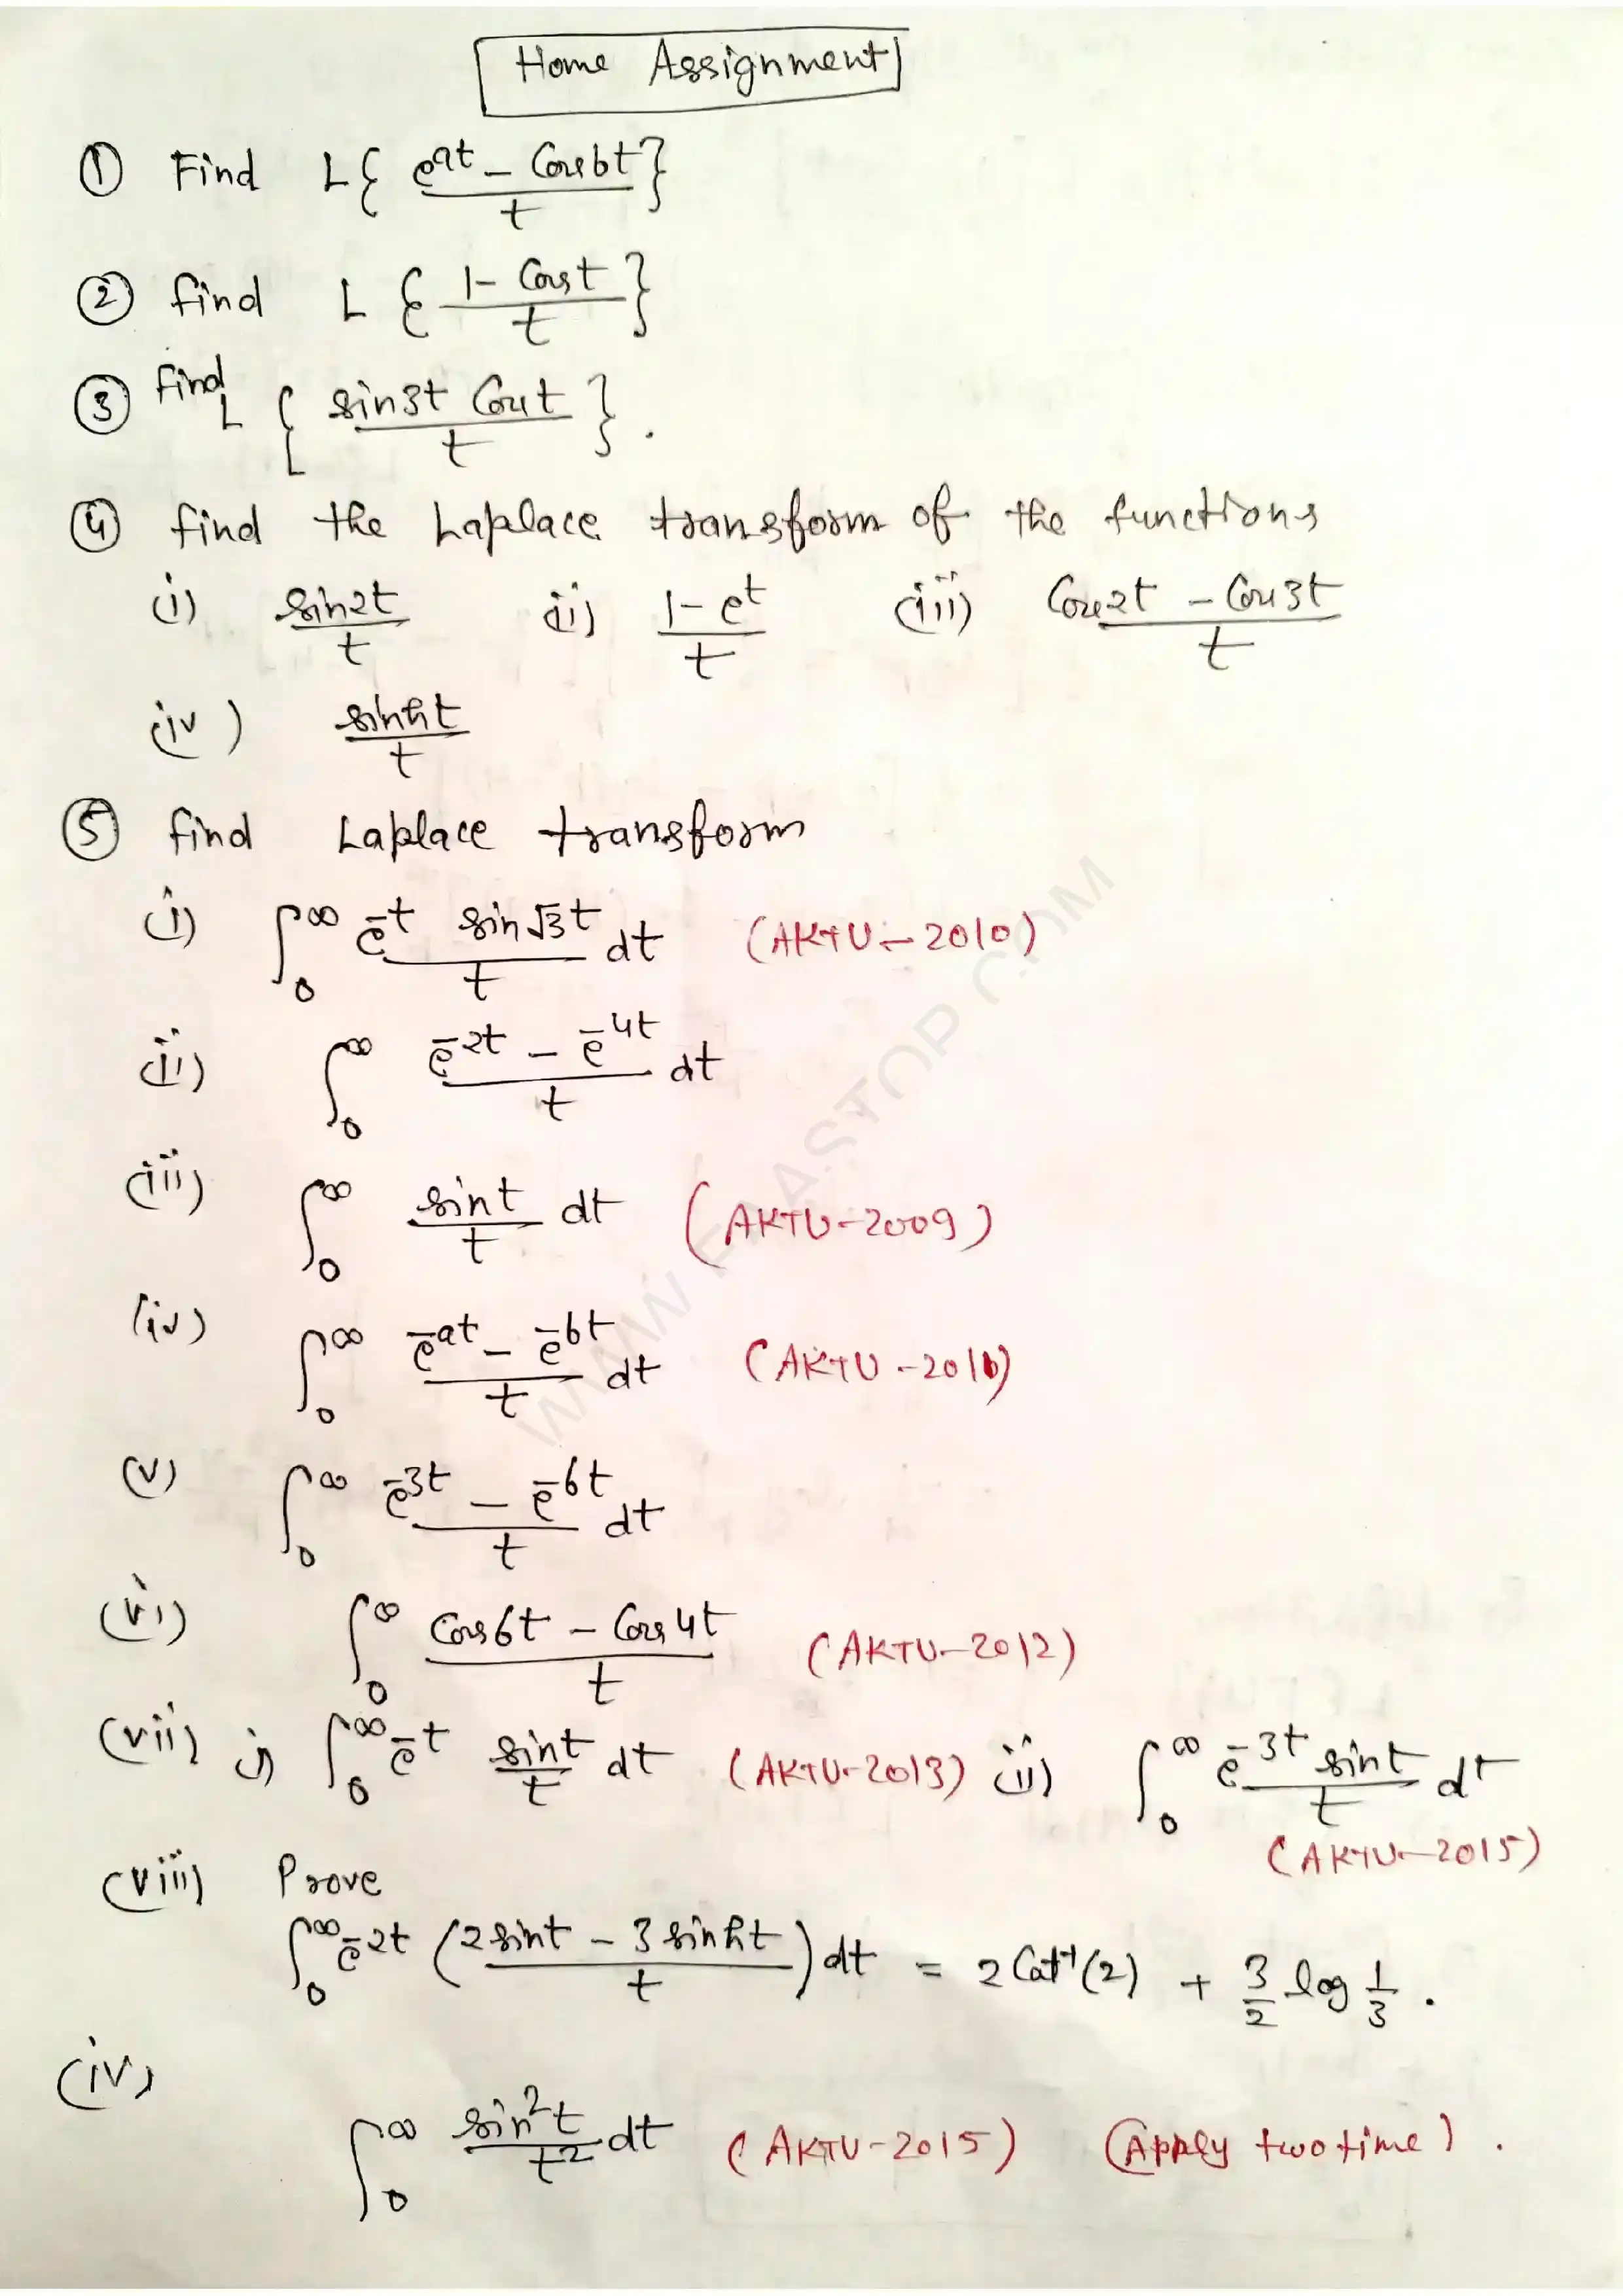 Home Assignment
① Find L{ (e^at - Cos bt)/t }
② find L { (1 - Cos t)/t }
③ find L { (sin3t Cos t)/t }.
④ find the Laplace transform of the functions
(i) sin2t/t (ii) (1 - e^t)/t (iii) (Cos2t - Cos3t)/t
(iv) sinht/t
⑤ find Laplace transform
(i) ∫₀^∞ (e^-t sin√3t)/t dt (AKTU-2010)
(ii) ∫₀^∞ (e^-2t - e^-4t)/t dt
(iii) ∫₀^∞ sint/t dt (AKTU-2009)
(iv) ∫₀^∞ (e^-at - e^-bt)/t dt (AKTU-2010)
(v) ∫₀^∞ (e^-3t - e^-6t)/t dt
(vi) ∫₀^∞ (Cos6t - Cos4t)/t (AKTU-2012)
(vii) i) ∫₀^∞ e^-t sint/t dt (AKTU-2013) ii) ∫₀^∞ (e^-3t sint)/t dt
(AKTU-2015)
(viii) Prove
∫₀^∞ e^-2t ((2sint - 3sinht)/t) dt = 2Cot^-1(2) + 3/2 log 1/3.
(iv)
∫₀^∞ sin²t/t² dt (AKTU-2015) (Apply two time).
WWW.FAASTOP.COM